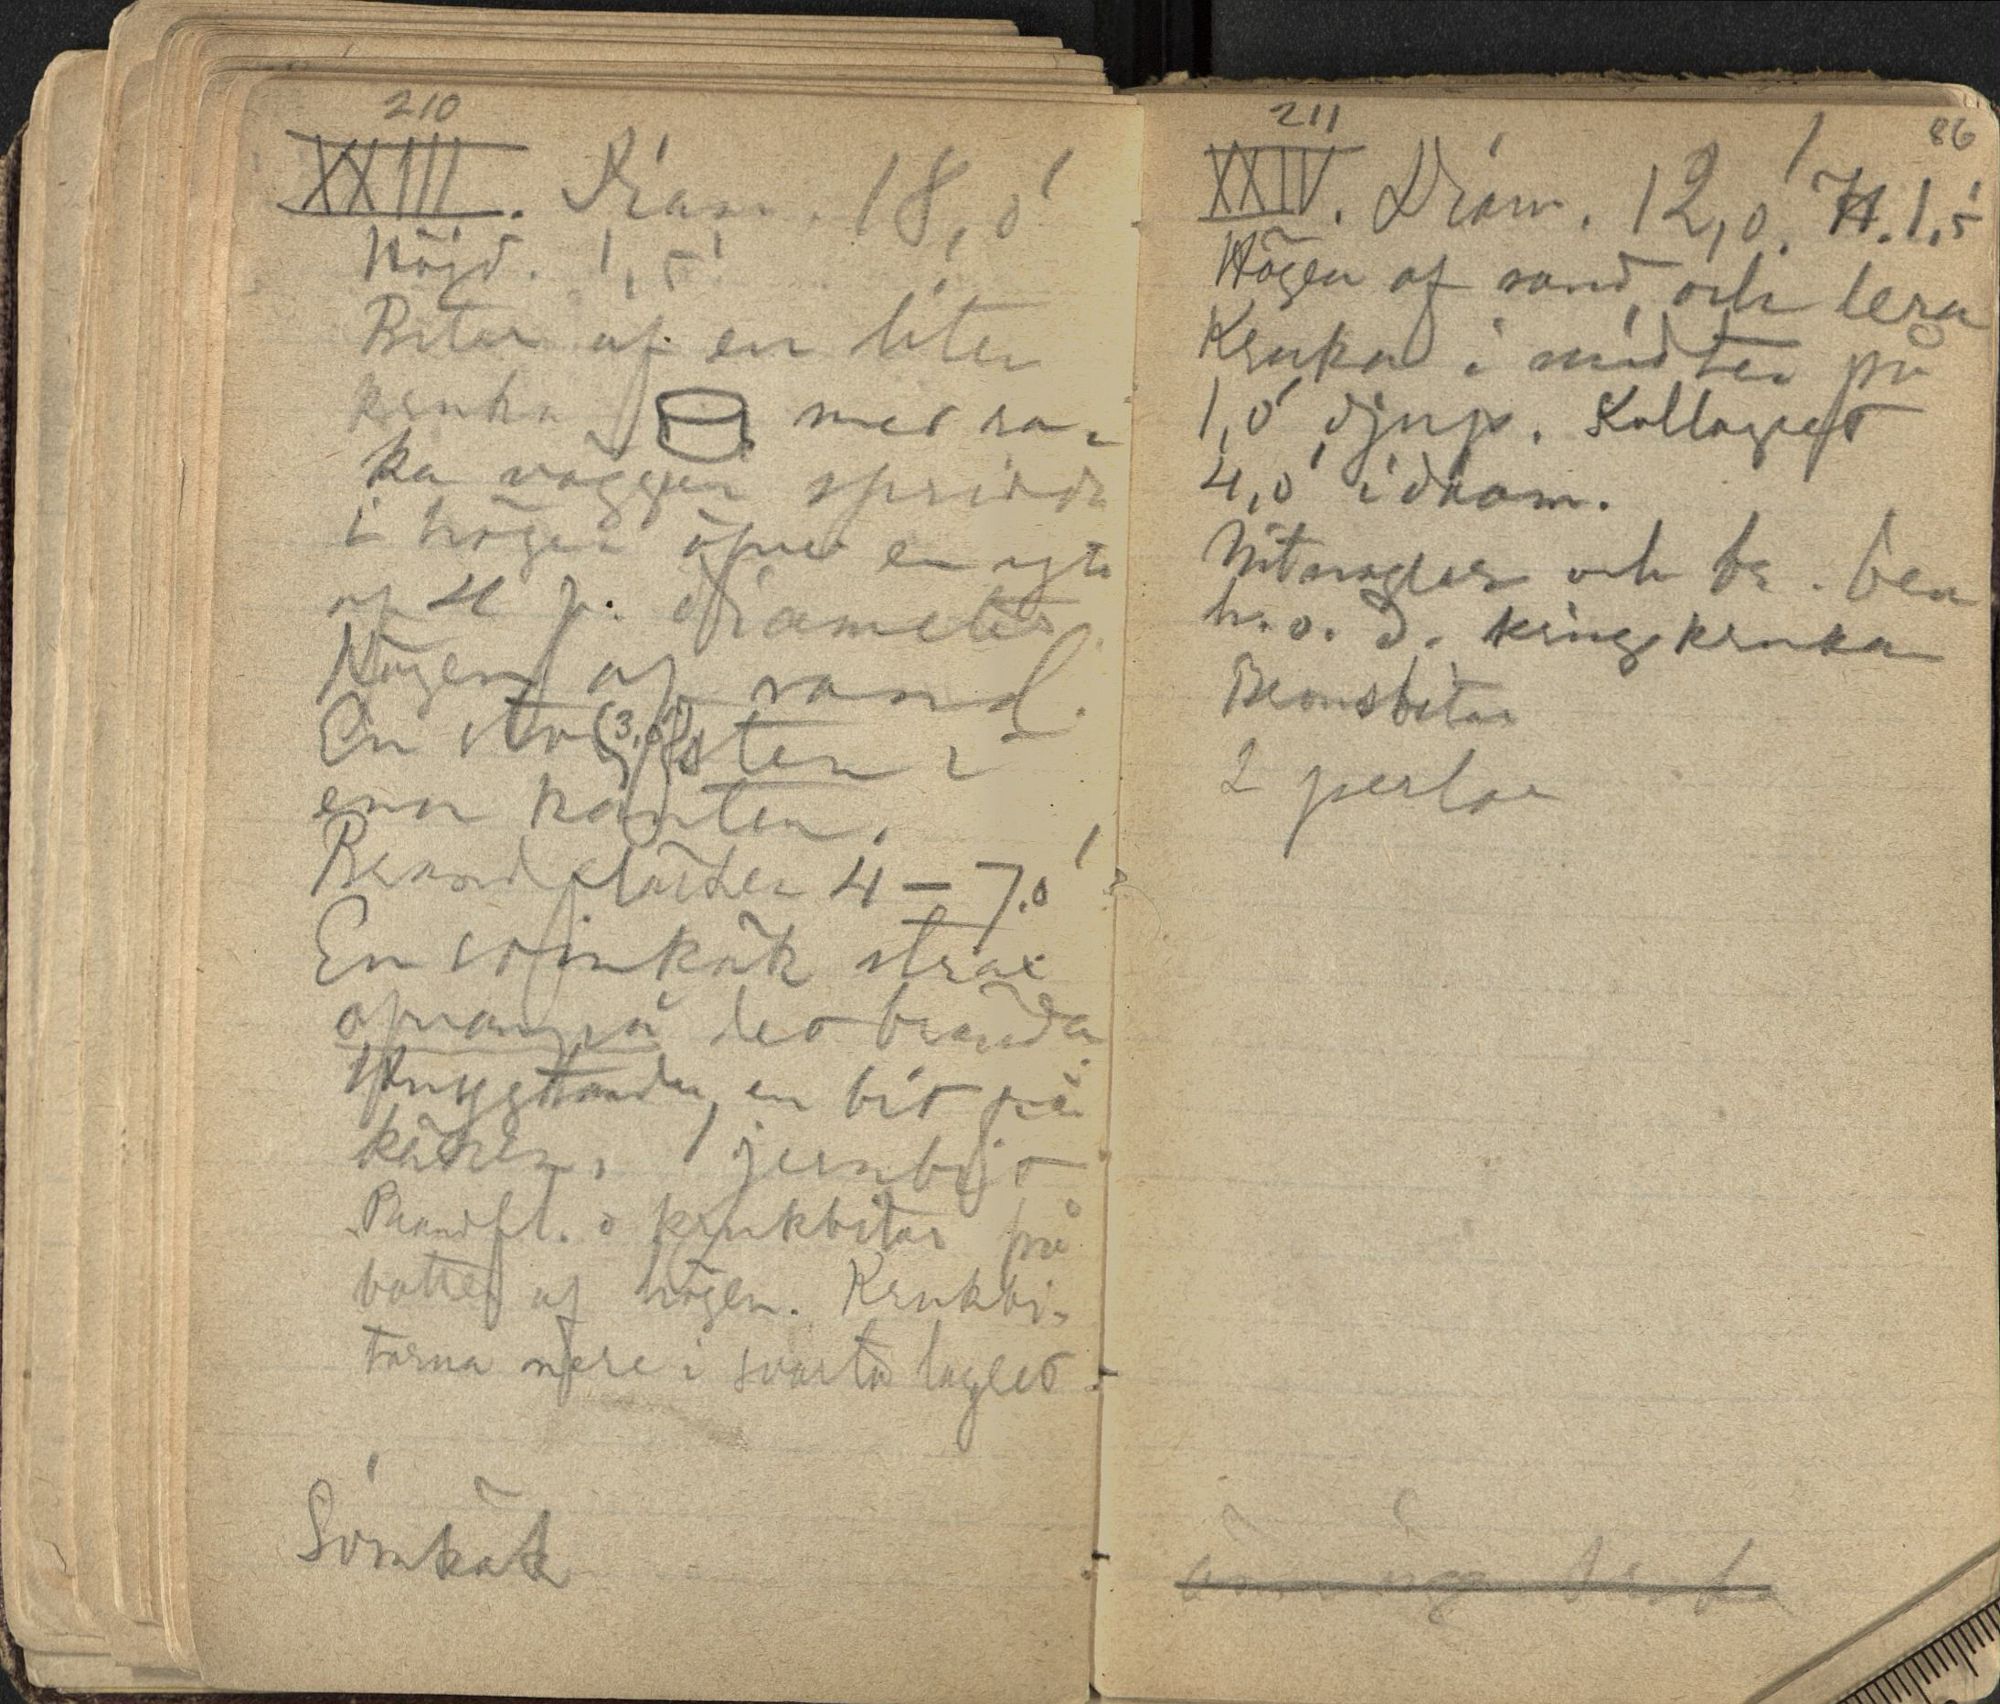 210
XXIII. Diam. 18,0'
Höjd. 1,5'
Bitar af en liten
kruka med ra-
ka väggar spridda
i högen öfver en yta
af 4 f. diameter.
Högen af sand.
En stor (3,0') sten i
ena kanten.
Brandfläcken 4 – 7.0'
En svinkäk strax
ofvanpå det brända
en bit på
kanten, 1 jernbit
Brandfl. o krukbitar på
botten af högen. Krukbi-
tarna nere i svarta lagret.
Svinkäk
211
86
XXIV. Diam. 12,0'. H. 1,5'
Högen af sand och lera
Kruka i midten på
1,0' djup. Kollagret
4,0' i diam.
Nitnaglar och br. ben
h. o. d. kring kruka
Bronsbitar
2 perlor